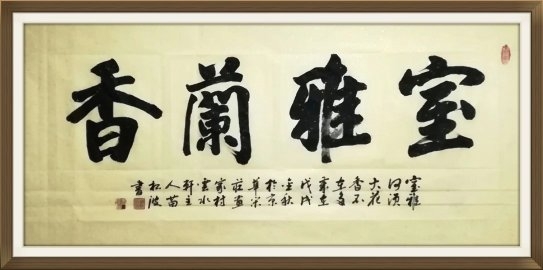 室雅蘭香
室雅
何須
大花
香不
在多
歲在
戊戌
金秋
於京
華宋
莊畫
家村
雲水
軒主
人苗
松波
書